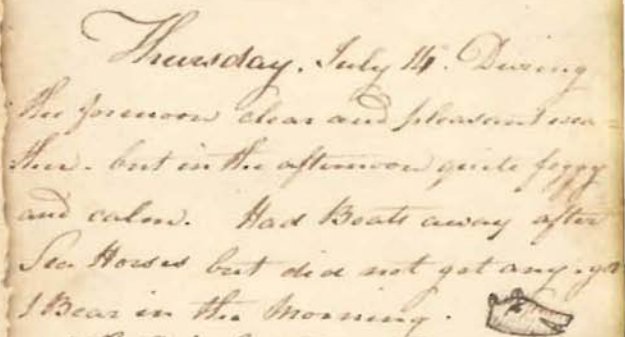 Thursday, July 14. During
the forenoon clear and pleasant wea-
ther. but in the afternoon quite foggy
and calm. Had Boats away after
Sea Horses but did not get any. got
1 Bear in the Morning.